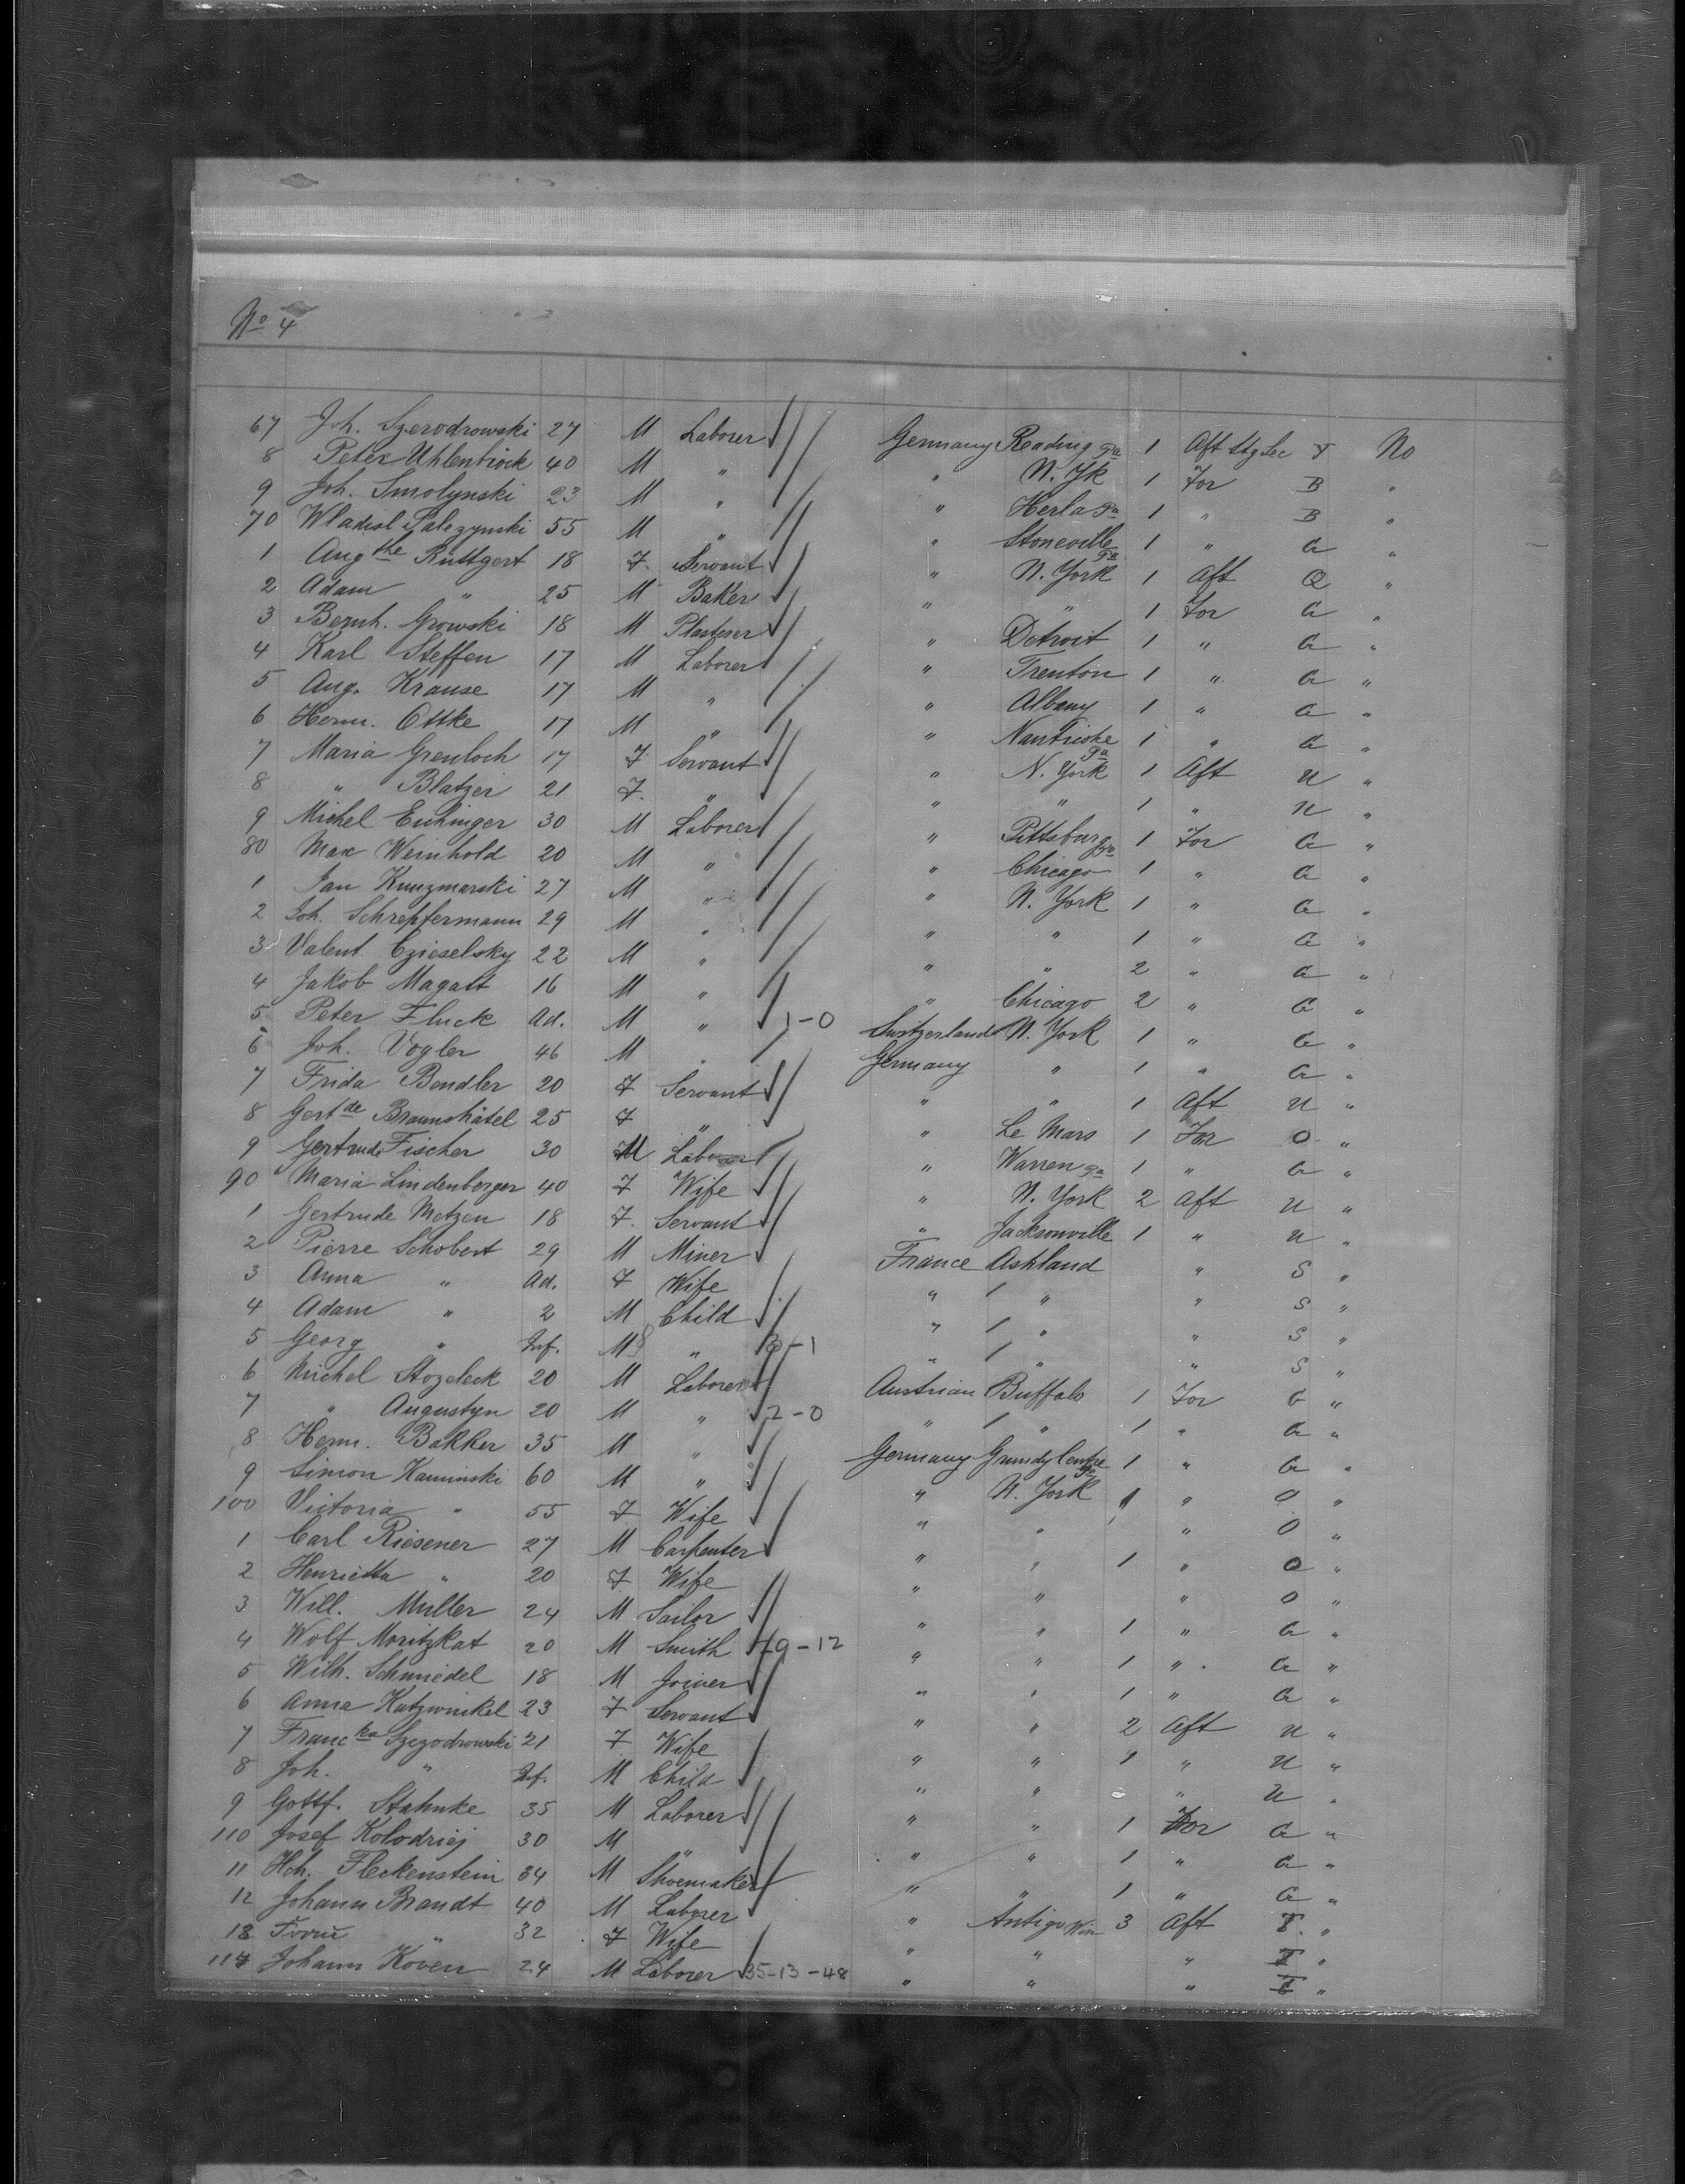 No 4
67 Joh. Szerodrowski 27 M Laborer Germany Reading Pa 1 Aft Stg Sec No
8 Peter Uhlenbrock 40 M " " N. Yk 1 For B "
9 Joh. Smolynski 23 M " " Herla Pa 1 " B "
70 Wladisl Salezynski 55 M " " Stoneville Pa 1 " G "
1 Augthe Ruttgert 18 F. Servant " N. York 1 Aft Q "
2 Adam " 25 M Baker " " 1 For G "
3 Bernh. Growski 18 M Plasterer " Detroit 1 " G "
4 Karl Steffen 17 M Laborer " Trenton 1 " G "
5 Aug. Krause 17 M " " Albany 1 " G "
6 Herm. Ottke 17 M " " Nanticoke Pa 1 " G "
7 Maria Grenloch 17 F Servant " N. York 1 Aft U "
8 " Blatzer 21 F. " " " 1 " U "
9 Michel Eichinger 30 M Laborer " Pittsburg Pa 1 For G "
80 Max Weinhold 20 M " " Chicago 1 " G "
1 Jan Kunzmarski 27 M " " N. York 1 " G "
2 Joh. Schrepfermann 29 M " " " 1 " G "
3 Valent. Czieselsky 22 M " " " 2 " G "
4 Jakob Magatt 16 M " " Chicago 2 " G "
5 Peter Fluck Ad. M " 1-0 Switzerland N. York 1 " G "
6 Joh. Vogler 46 M " Germany " 1 " G "
7 Frida Bendler 20 F Servant " " 1 Aft U "
8 Gertde Braunshätel 25 F " " Le Mars 1 For O "
9 Gertrude Fischer 30 M Laborer " Warren Pa 1 " G "
90 Maria Lindenberger 40 F Wife " N. York 2 Aft U "
1 Gertrude Metzen 18 F. Servant " Jacksonville 1 " U "
2 Pierre Schobert 29 M Miner France Ashland " S "
3 Anna " Ad. F Wife " 1 " " S "
4 Adam " 2 M Child " 1 " " S "
5 Georg " Inf. M " 3-1 " 1 " " S "
6 Michel Stozeleck 20 M Laborer Austrian Buffalo 1 For G "
7 " Augustyn 20 M " 2-0 " 1 " 1 " G "
8 Herm. Bakker 35 M " Germany Grundy Centre 1 " G "
9 Simon Kaminski 60 M " " N. York 1 " O "
100 Victoria " 55 F Wife " " " O "
1 Carl Riesener 27 M Carpenter " " 1 " O "
2 Henrietta " 20 F Wife " " " O "
3 Will. Muller 24 M Sailor " " 1 " G "
4 Wolf Moritzkat 20 M Smith 29-12 " " 1 " G "
5 Wilh. Schmiedel 18 M Joiner " " 1 " G "
6 Anna Katzwinkel 23 F Servant " " 2 Aft U "
7 Francka Szczodrowski 21 F Wife " " 1 " U "
8 Joh. " Inf. M Child " " " U "
9 Gottf. Stahnke 35 M Laborer " " 1 For G "
110 Josef Kolodriej 30 M " " " 1 " G "
11 Hch. Fleckenstein 34 M Shoemaker " " 1 " G "
12 Johann Brandt 40 M Laborer " Antigo Win 3 Aft T "
13 " 32 F Wife " " " T "
114 Johann Köven 24 M Laborer 35-13-48 " " " "